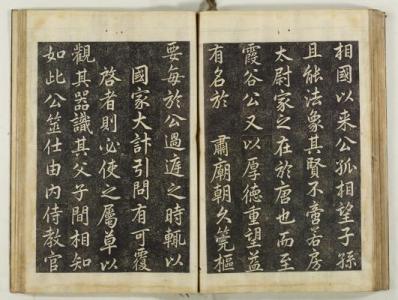 相國以来公孤相望子孫
且能法象其賢不啻若房
太尉家之在於唐也而至
霞谷公又以厚德重望益
有名於　肅廟朝久筦樞
要每於公過遲之時輒以
國家大計引問有可覆
啓者則必使之屬草以
觀其器識其父子間相知
如此公筮仕由内侍教官